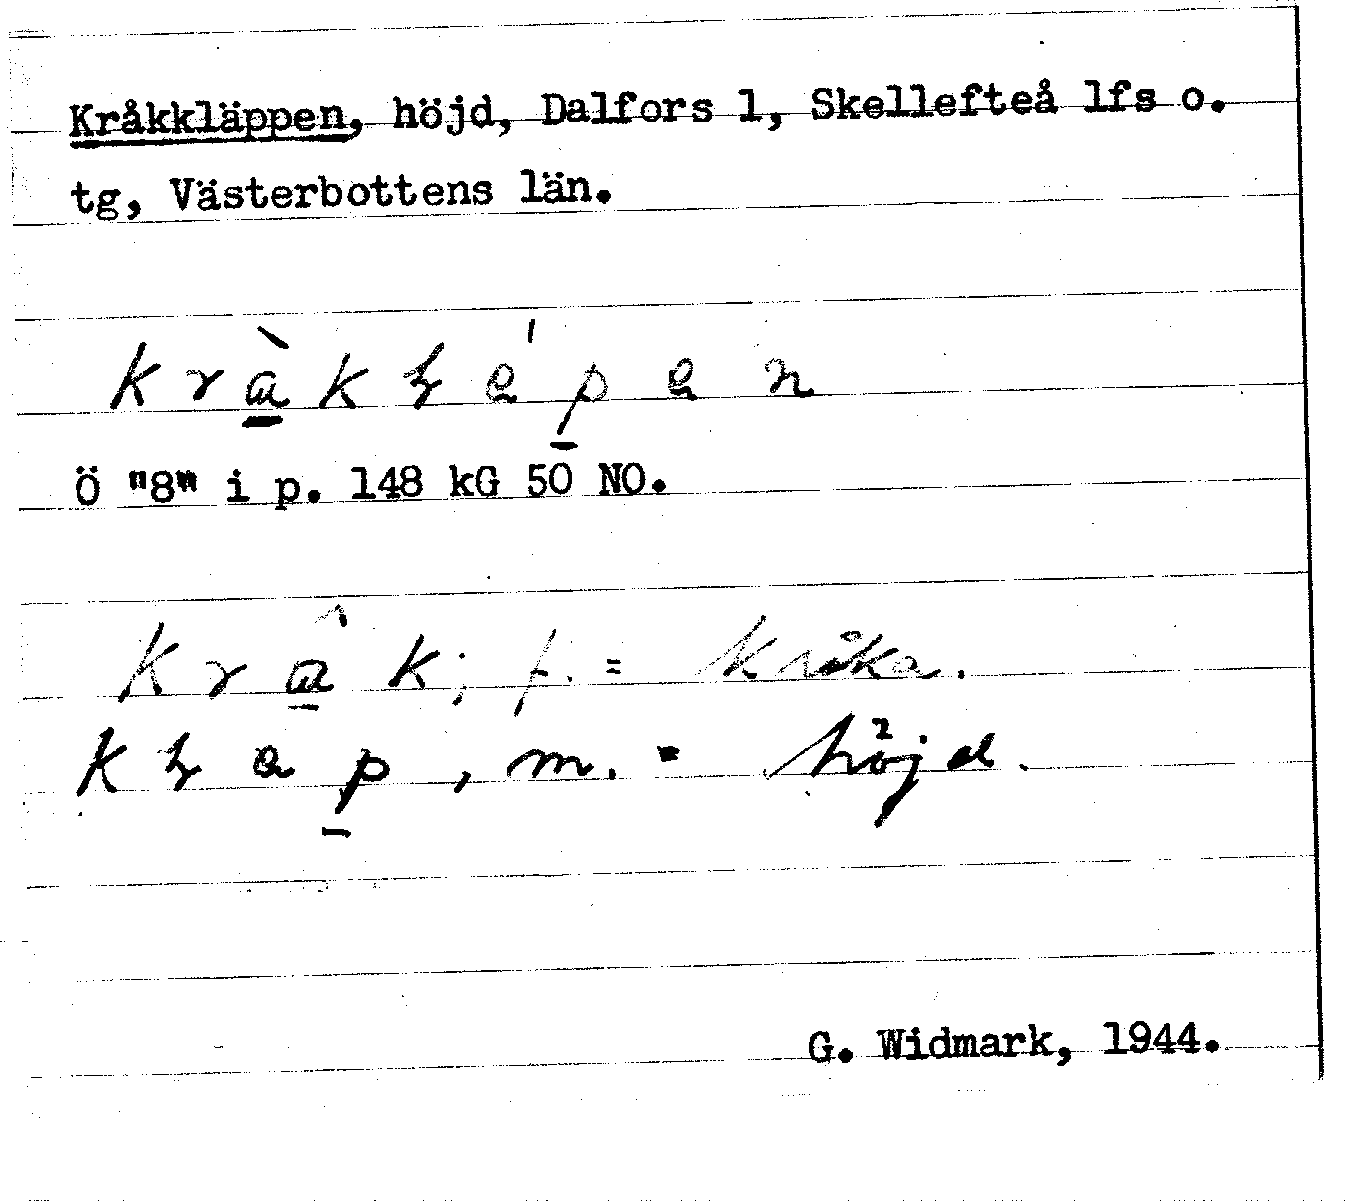 Kråkkläppen, höjd, Dalfors 1, Skellefteå lfs o.
tg, Västerbottens län.
Ö "8" i p. 148 kG 50 NO.
k; f. = kråka.
, m. = höjd.
G. Widmark, 1944.